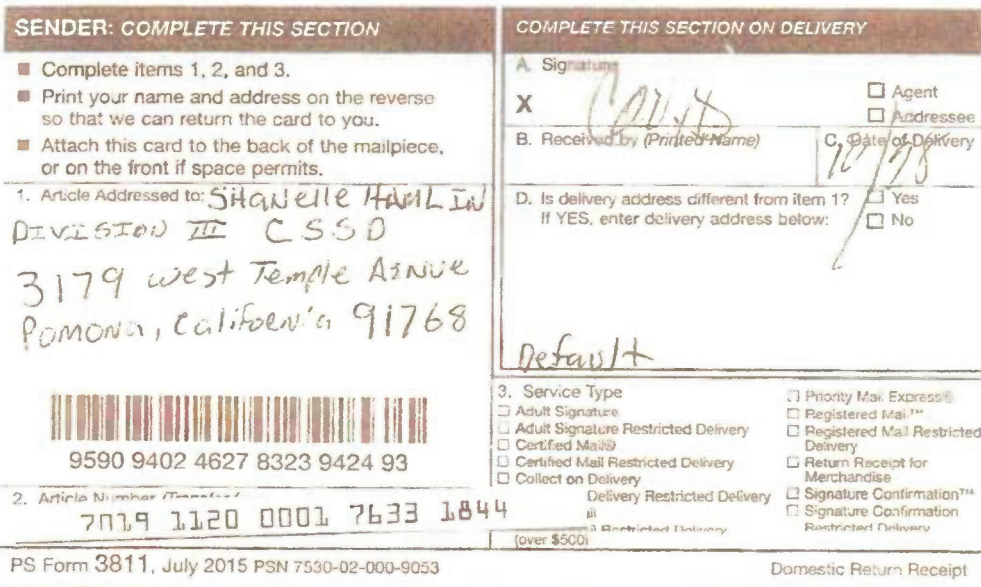 SENDER: COMPLETE THIS SECTION
■ Complete items 1, 2, and 3.
■ Print your name and address on the reverse
so that we can return the card to you.
■ Attach this card to the back of the mailpiece,
or on the front if space permits.
1. Article Addressed to: SHANelle HAMLIN
DIVISION III CSSD
3179 west Temple AINUE
POMONA, California 91768
9590 9402 4627 8323 9424 93
2. Article Number
7019 1120 0001 7633 1844
COMPLETE THIS SECTION ON DELIVERY
A. Signature
X
☐ Agent
☐ Addressee
B. Received by (Printed Name)
C. Date of Delivery
D. Is delivery address different from item 1? ☐ Yes
If YES, enter delivery address below: ☐ No
Default
3. Service Type
☐ Adult Signature
☐ Adult Signature Restricted Delivery
☐ Certified Mail®
☐ Certified Mail Restricted Delivery
☐ Collect on Delivery
Delivery Restricted Delivery
Restricted Delivery
(over $500)
☐ Priority Mail Express®
☐ Registered Mail™
☐ Registered Mail Restricted
Delivery
☐ Return Receipt for
Merchandise
☐ Signature Confirmation™
☐ Signature Confirmation
Restricted Delivery
PS Form 3811, July 2015 PSN 7530-02-000-9053
Domestic Return Receipt